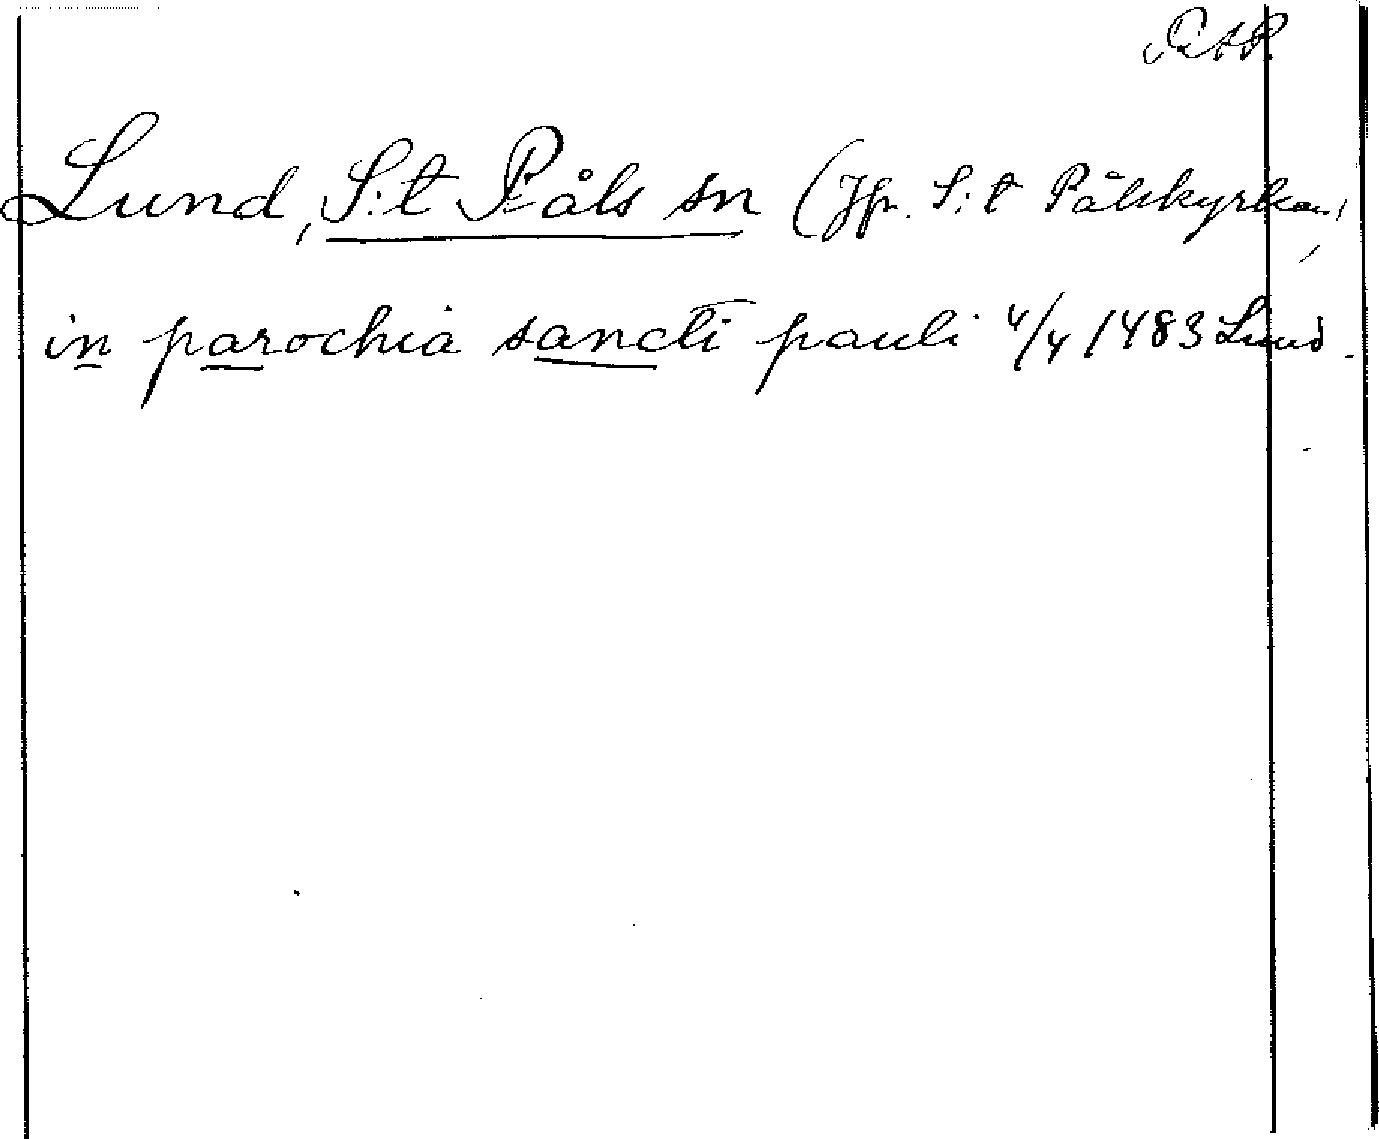 Lund, S:t Påls sn (Jfr. S:t Pålskyrkan)
in parochia sancti pauli 4/4 1483 Lund.